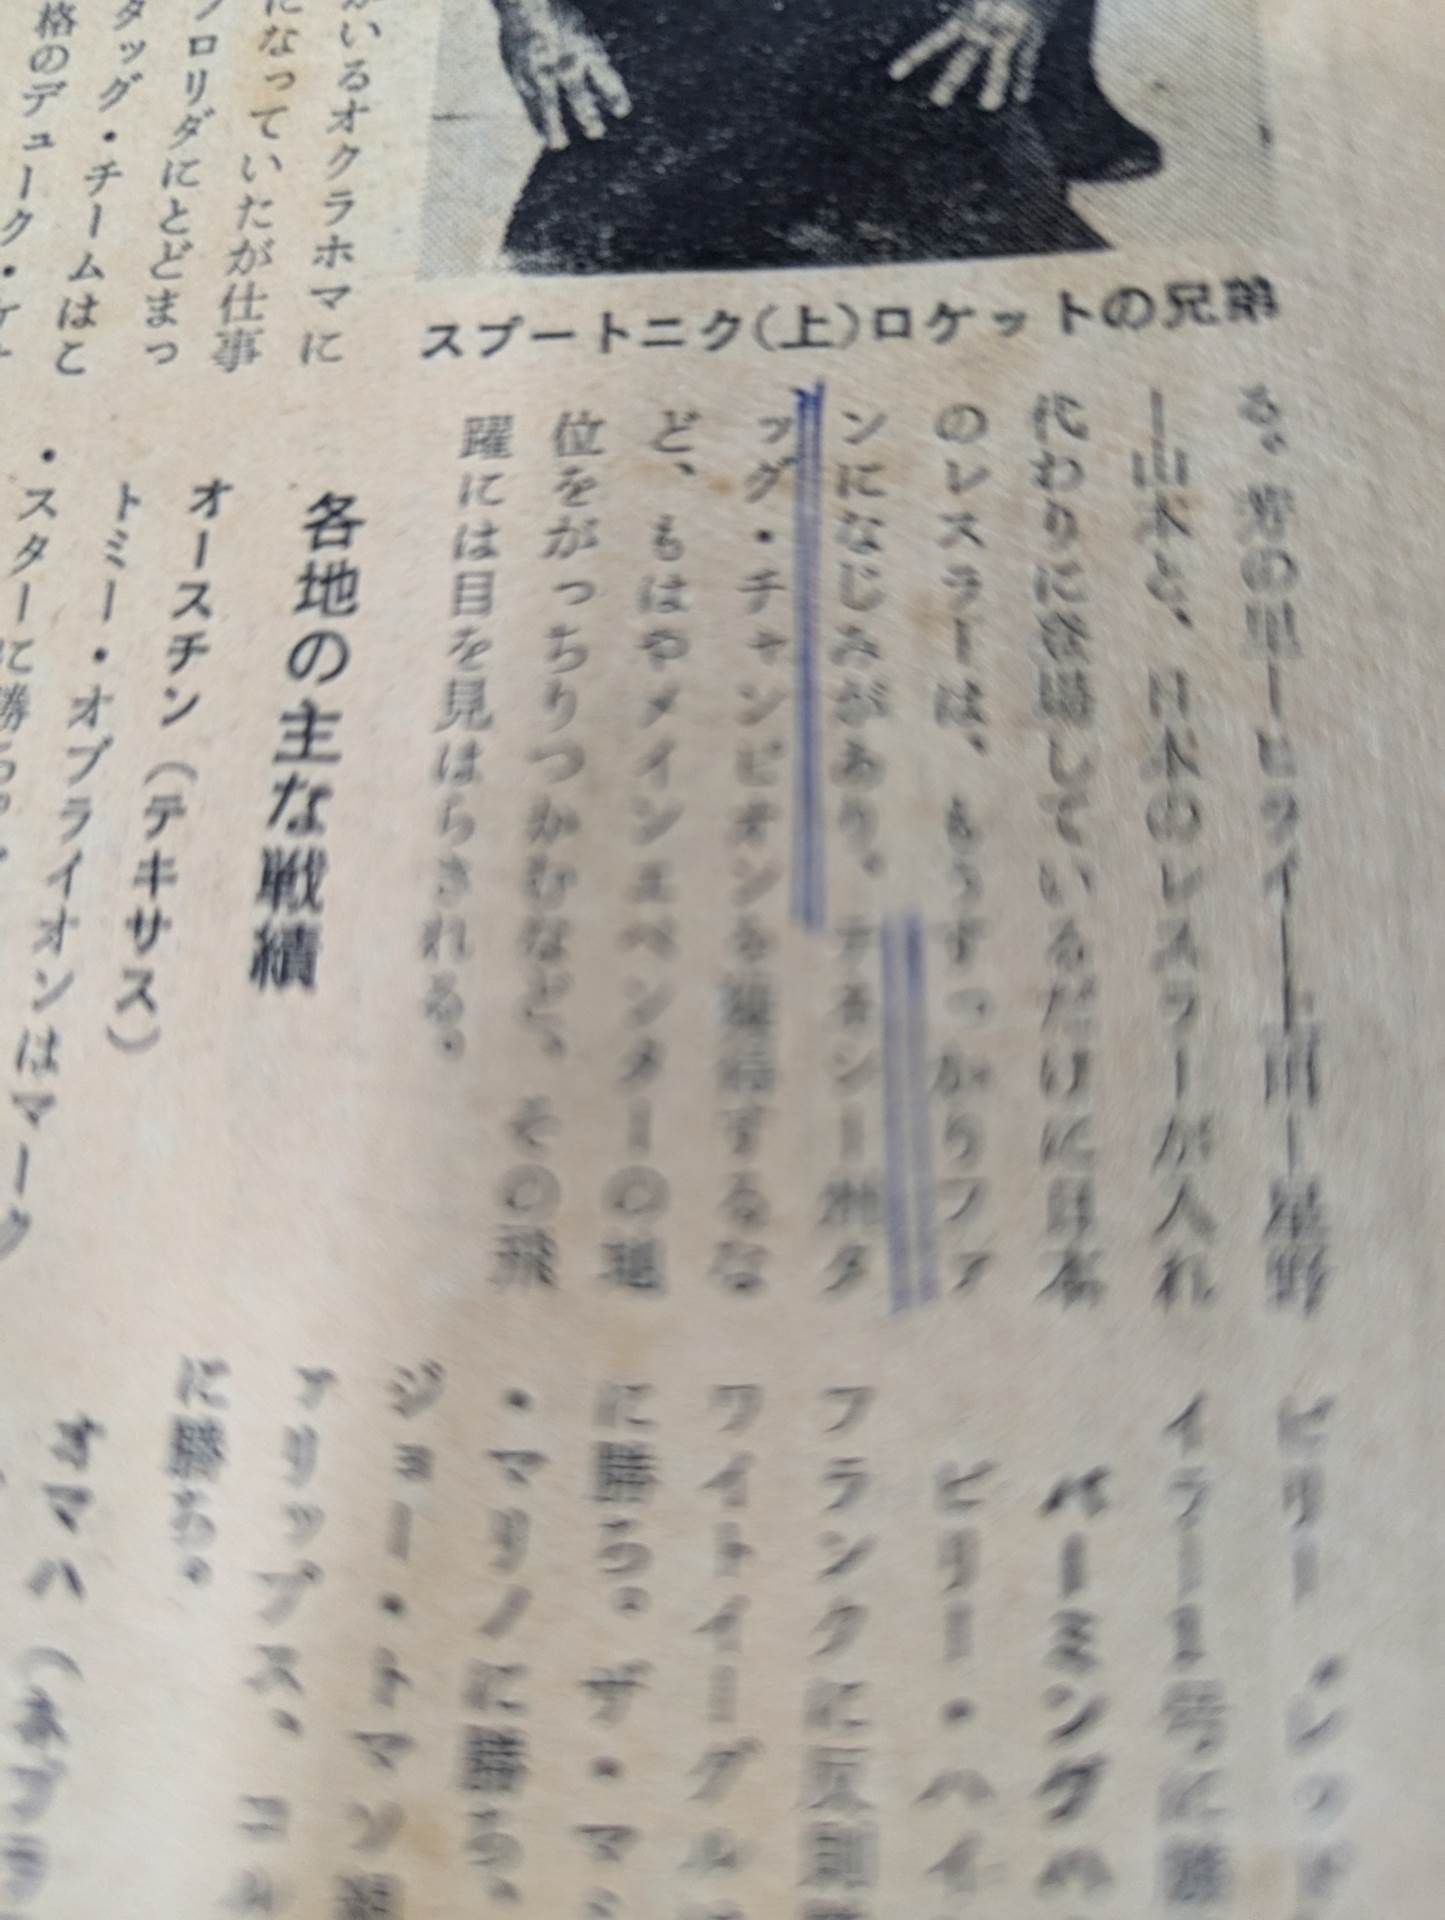 スプートニク(上)ロケットの兄弟
がいるオクラホマに
になっていたが仕事
フロリダにとどまっ
タッグ・チームはこ
格のデューク・ケ
の里―ヒライ――星野
―山本と、日本のレスラーが入れ
代わりに登場しているだけに日本
のレスラーは、もうすっかりファ
ンになじみがあり、テネシー州タ
ッグ・チャンピオンを獲得するな
ど、もはやメインエベンターの地
位をがっちりつかむなど、その飛
躍には目を見はらされる。
各地の主な戦績
オースチン(テキサス)
トミー・オブライオンはマーク
・スターに勝ち。
ビリー
イラー1号に勝
バーミングハ
ビリー・ハイ
フランクに反則
ワイトイーグル
に勝ち。ザ・マ
・マリノに勝ち。
ジョー・トマソ
フリップス、コル
に勝ち。
オマハ(ネブラ